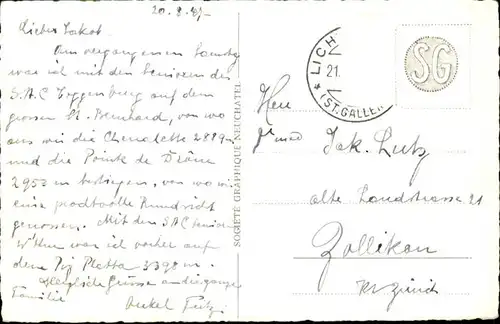 20.8.
Lieber Jakob.
Am vergangenen Samstag
war ich mit den Senioren des
S.A.C Toggenburg auf dem
grossen St. Bernhard, von wo
aus wir die Chenalette 2889m
und die Pointe de Drône
2950 m bestiegen, von wo wir
eine prachtvolle Rundsicht
genossen. Mit den SAC Senioren
W'thur war ich vorher auf
dem Piz Platta 3398 m.
Herzliche Grüsse an die ganze
Familie
Onkel Fritz
SOCIÉTÉ GRAPHIQUE NEUCHATEL
* LICH
21.
(ST. GALLEN
SG
Herr
Jak. Lutz
alte Landstrasse 21
Zollikon
Kt Zürich